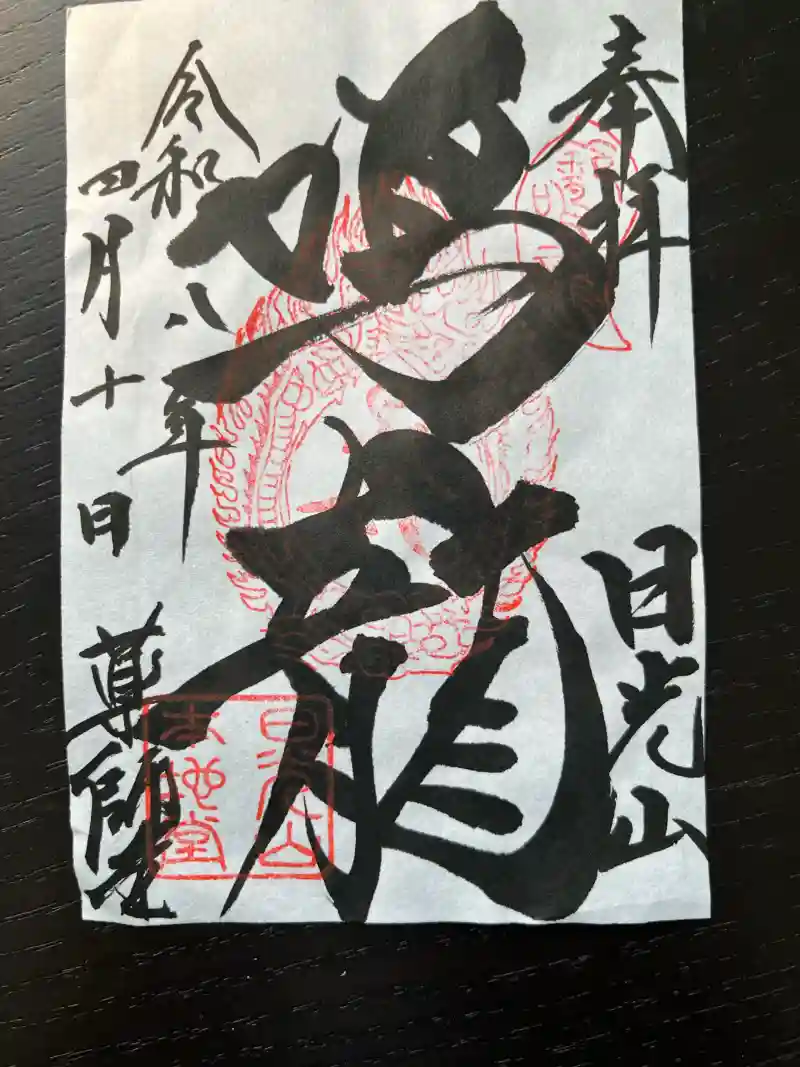 奉拝
日光山
鳴龍
令和八年
四月十日
薬師堂
日光山
本地堂